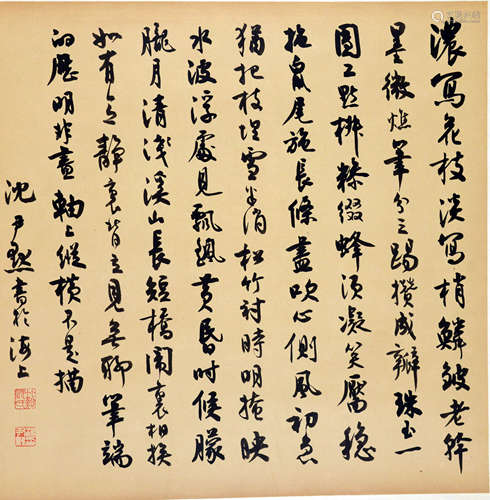 濃寫花枝淡寫梢鱗皴老幹
墨微焦筆分三踢攢成瓣珠玉一
圓工點椒糝綴蜂須凝笑靨穩
拖鼠尾施長條盡吹心側風初急
猶把枝埋雪半消松竹襯時明掩映
水波浮處見飄颻黃昏時候朦
朧月清淺溪山長短橋鬧裏相挨
如有意靜裏背立見無聊筆端
的歷明非畫軸上縱橫不是描
沈尹默書於海上